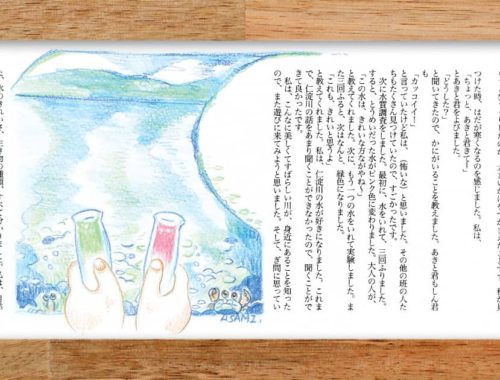 つけた時、はだが寒くなるのを感じました。私は、
「ちょっと、あきと君きて!」
とあきと君をよびました。
「どうした?」
と聞いてきたので、かにがいることを教えました。あきと君もしん君
も
「カッコイイー!」
と言っていたけど私は、「怖いな」と思いました。その他の班の人た
ちもたくさん見つけていたので、すごかったです。
次に水質調査をしました。最初に、水をいれて、三回ふりました。
すると、とうめいだった水がピンク色に変わりました。大人の人が、
「この水は、きれいな方ながやねぇ」
と教えてくれました。次に、もう一つの水をいれて実験しました。ま
た三回ふると、次はなんと、緑色になりました。
「これも、きれいと思うよ」
と教えてくれました。私は、仁淀川の水が好きになりました。これま
で、仁淀川の話をあまり聞くことができなかったので、聞くことがで
きて良かったです。
私は、こんなに美しくてすばらしい川が、身近にあることを知った
ので、また遊びに来てみようと思いました。そして、ぎ問に思ってい
ASAMI.